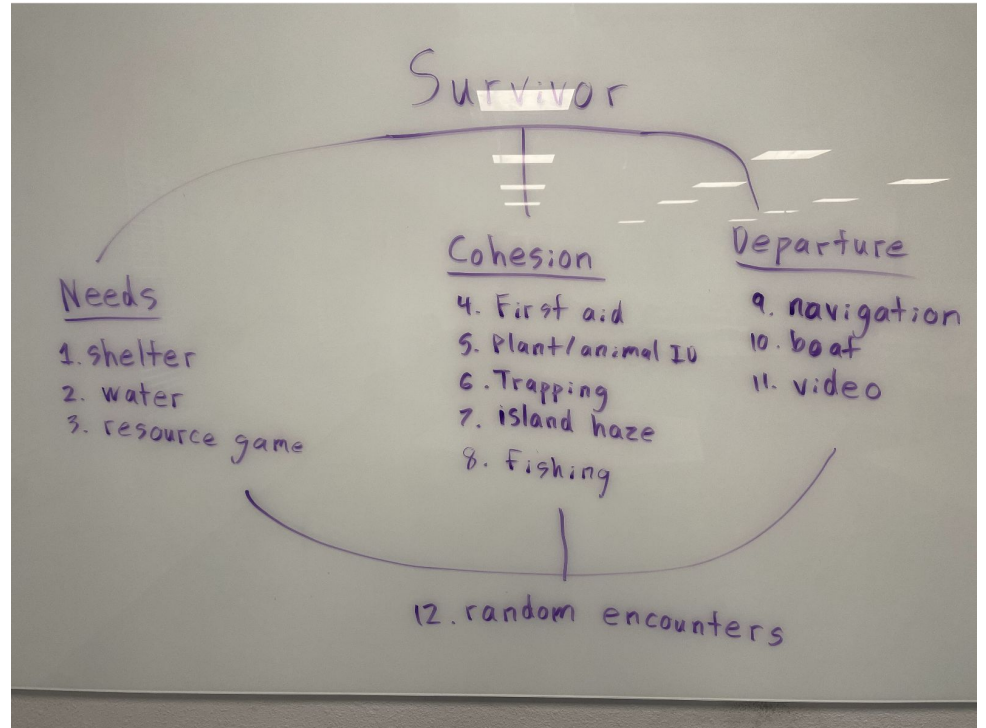 Survivor
Needs
1. shelter
2. water
3. resource game
Cohesion
4. First aid
5. Plant/animal ID
6. Trapping
7. island haze
8. Fishing
Departure
9. navigation
10. boat
11. video
12. random encounters